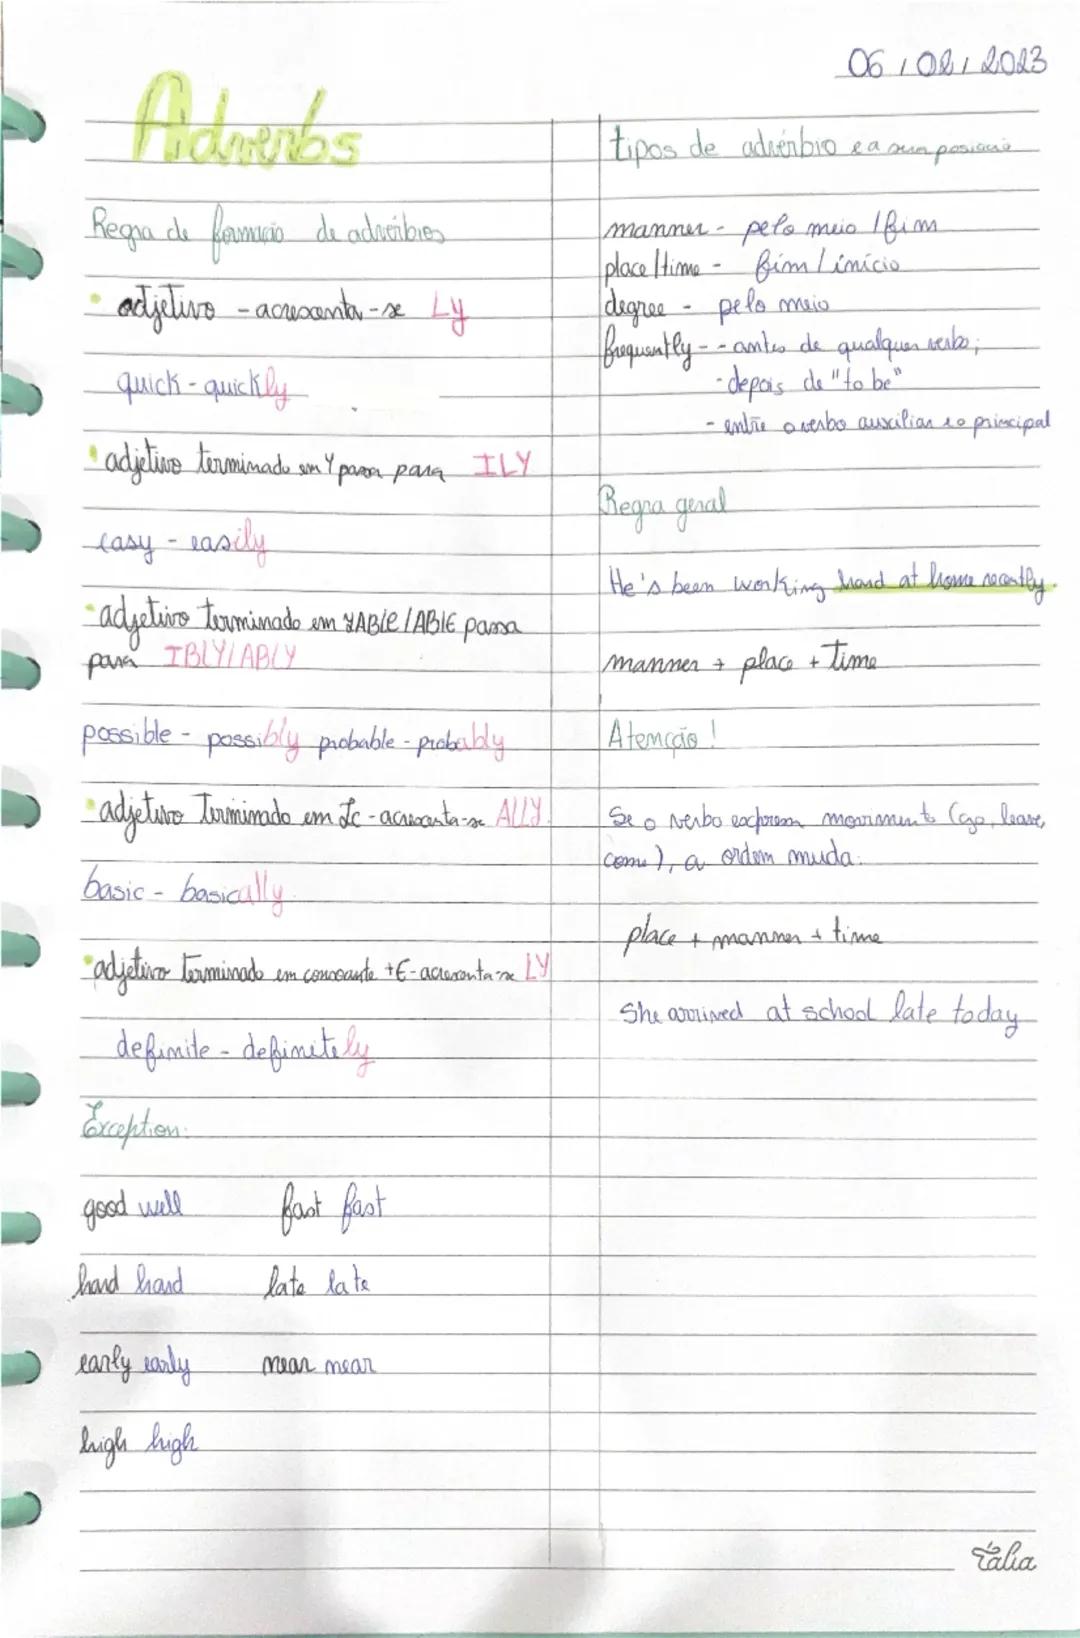 06/02/2023
Adverbs
Regra de formação de advérbios
• adjetivo - acrescenta-se LY
quick - quickly
• adjetivo terminado em Y passa para ILY
easy - easily
• adjetivo terminado em IABLE/ABLE passa
para IBLY/ABLY
possible - possibly probable - probably
• adjetivo terminado em Ic - acrescenta-se ALLY
basic - basically
• adjetivo terminado em consoante +E - acrescenta-se LY
definite - definitely
Exception:
good well fast fast
hard hard late late
early early near near
high high
tipos de advérbio e a sua posição
manner - pelo meio / fim
place/time - fim / início
degree - pelo meio
frequently - - antes de qualquer verbo;
- depois de "to be"
- entre o verbo auxiliar e o principal
Regra geral
He's been working hard at home recently.
manner + place + time
Atenção!
Se o verbo expressa movimento (go, leave,
come), a ordem muda.
place + manner + time
She arrived at school late today
Tália